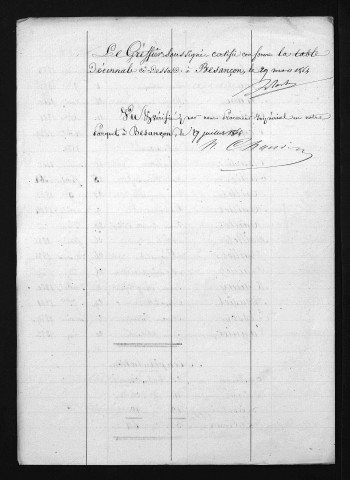 Le Greffier soussigné certifie conforme la table
Décennale ci-dessus. à Besançon, le 29 mars 1864
Vu & Vérifié par nous Procureur Impérial en notre
Parquet à Besançon, le 27 juillet 1864